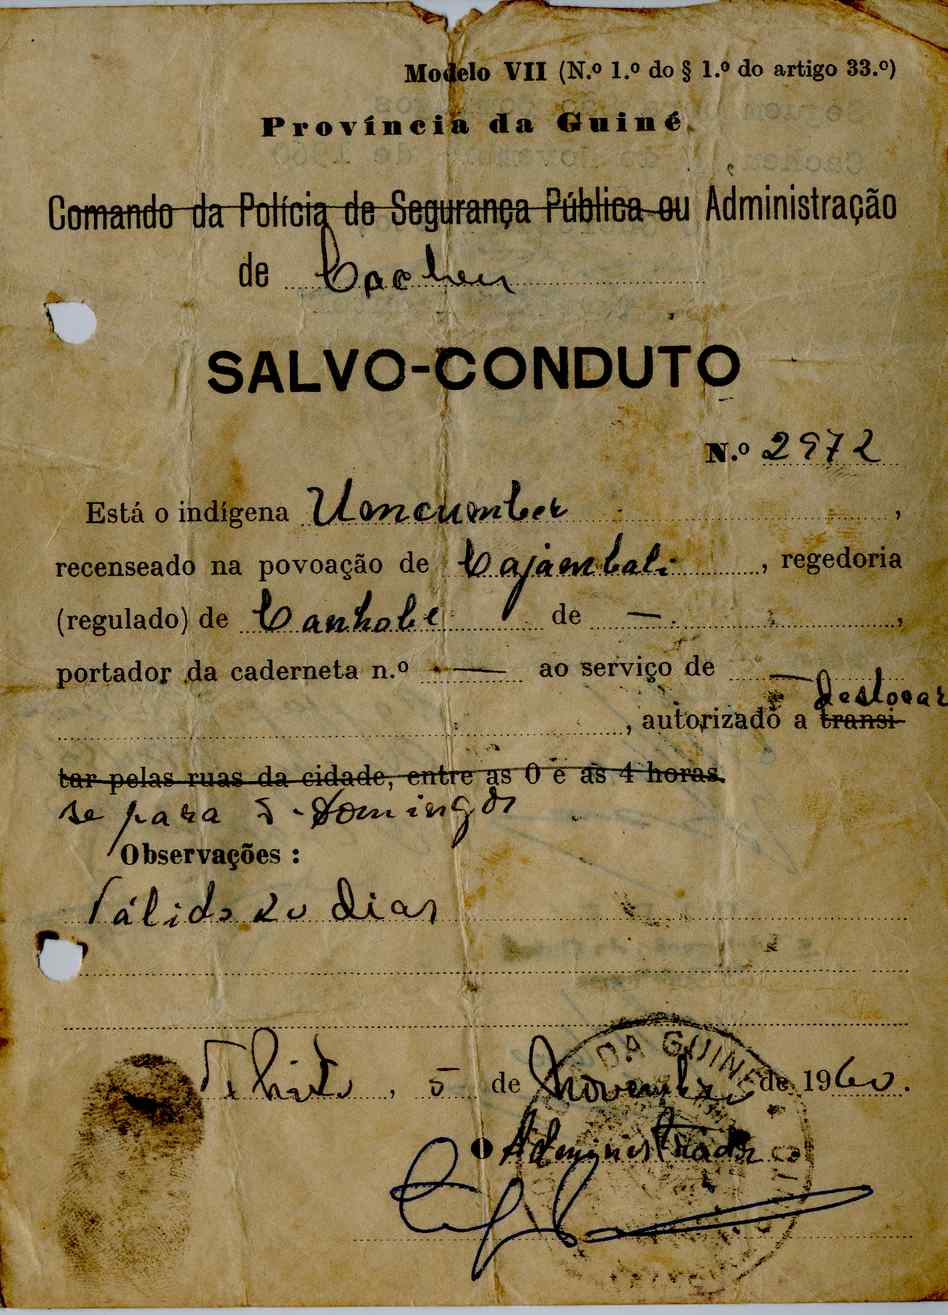 Modelo VII (N.º 1.º do § 1.º do artigo 33.º)
Província da Guiné
Comando da Polícia de Segurança Pública ou Administração
de Cacheu
SALVO-CONDUTO
N.º 2972
Está o indígena Umcumber ,
recenseado na povoação de Cajambali , regedoria
(regulado) de Canhobe de — ,
portador da caderneta n.º — ao serviço de —
deslocar
, autorizado a transi-
tar pelas ruas da cidade, entre as 0 e às 4 horas.
se para S. Domingos
Observações :
Válido 20 dias
, 5 de Novembro de 1960.
O Administrador
DA GUINÉ